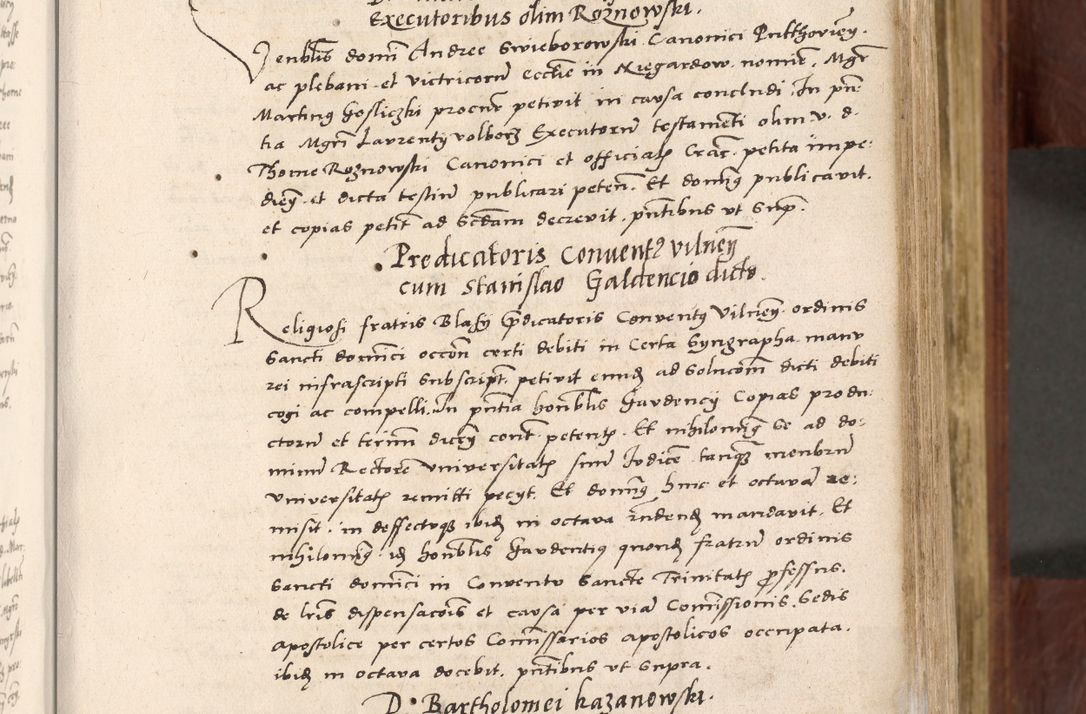 Executoribus olim Roznowski.
Venblis domi Andree Swieborowski Canonici Putthovien.
ac plebani et victricoru ecclie in Niegardow nomine, Mgr
Martinus Gosliczki procur petivit in causa concludi. In pn
tia Mgri Laurenty volborz Executoru testamenti olim v. d.
Thome Roznowski Canonici et officialis Crac. petita impe
dien. et dicta testiu publicari peten. Et domin9 publicavit.
et copias petit ad Scdam decrevit. pntibus ut Sup.
Predicatoris Convent9 vilnen
cum Stanislao Galdencio dicto.
Religiosi fratris Blasij Pdicatoris Convent9 Vilnen. ordinis
Sancti dominici occon certi debiti in Certa Syngrapha manu
rei infrascripti Subscript. petivit eund ad Solucom dicti debiti
cogi ac compelli. In pntia honblis Gaudencij Copias produ
ctoru et termi dicen cont petentis. Et nihilomin9 Se ad do
minu Rectore Universitatis suu Judice tanq menbru
Universitatis remitti pecyt. Et domin9 hinc et octava re
misit. in deffectuq ibid in octava rndend mandavit. Et
nihilomin9 id honblis Gaudenti9 quond fratru ordinis
Sancti domici in Conventu Sancte Trinitatis pfessus.
de lris dispensacois et causa per via Comissionis Sedis
apostolice per certos Comissarios apostolicos occupata.
ibid in octava docebit. pntibus ut Supra.
D. Bartholomei Kazanowski.